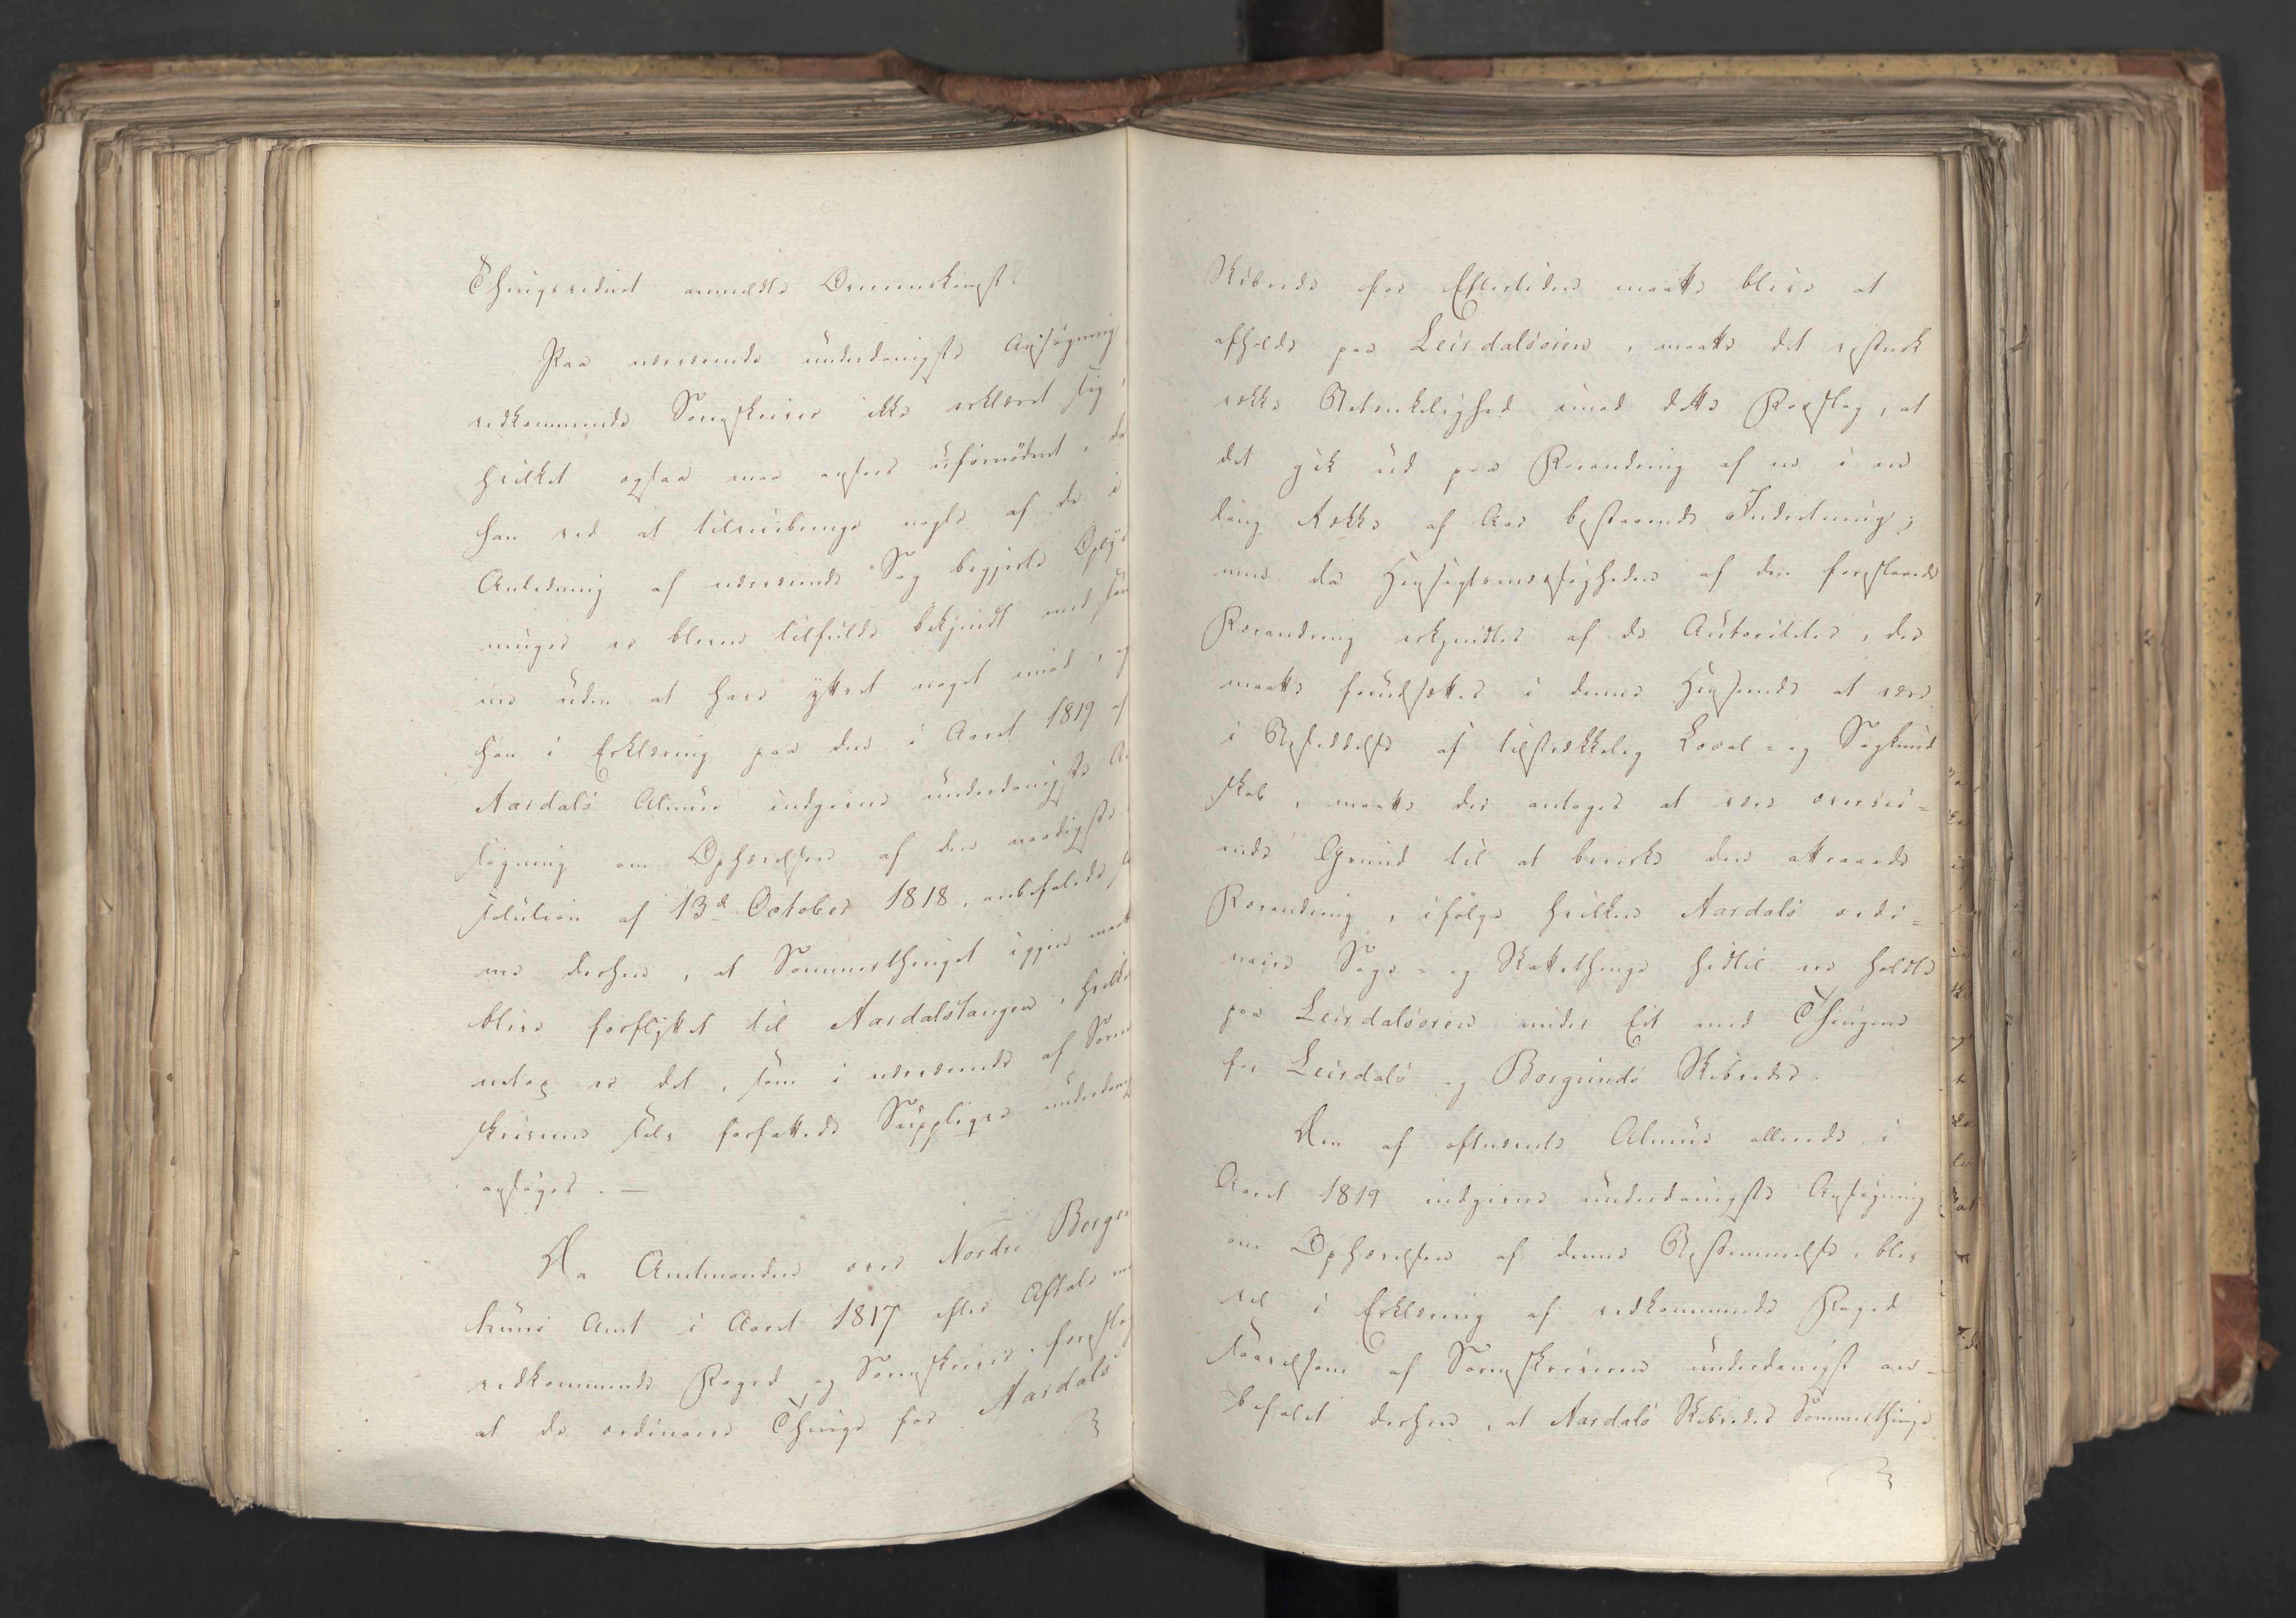 Thingvidnet anmeldte Overenskomst.
Paa nærværende underdanigste Ansøgning
vedkommende Sorenskriver ikke erklæret sig,
hvilket ogsaa maa ansees ufornödent, da
han ved at tilveiebringe nogle af de i
Anledning af nærværende Sag begjerte Oplys
ninger er bleven tilfulde bekjendt med sam
me uden at have yttret noget imod, og
han i Erklæring paa den i Aaret 1819 af
Aardals Almue indgivne underdanigste An
søgning om Ophævelsen af den naadigste
solution af 13de October 1818, anbefalede sa
me derhen, at Sommerthinget igjen maatte
blive forflyttet til Aardalstangen, hvilket
netop er det, som i nærværende af Soren
skriveren selv forfattede Supplique underdanigst
ansøges. —
Da Amtmanden over Nordre Bergen
huus Amt i Aaret 1817 efter Aftale med
vedkommende Foged og Sorenskriver, foreslog
at de ordinaire Thinge for Aardals
Skibrede for Eftertiden maatte blive at
afholde paa Leirdalsøren, maatte det vistnok
vække Betænkelighed imod dette Forslag, at
det gik ud paa Forandring af en i en
lang Række af Aar bestaaende Indretning;
men da Hensigtsmæssigheden af den foreslaaede
Forandring erkjendtes af de Autoriteter, der
maatte forudsættes i denne Henseende at være
i Besiddelse af tilstrækkelig Local- og Sagkund
skab, maatte der antages at være overvei-
ende Grund til at bevirke den attraaede
Forandring, ifølge hvilken Aardals ordi-
naire Sage- og Skattethinge hidtil ere holdte
paa Leirdalsøren under Eet med Thingene
for Leirdals og Borgunds Skibreder.
Den af oftnævnte Almue allerede i
Aaret 1819 indgivne underdanigste Ansøgning
om Ophævelsen af denne Bestemmelse, blev
vel i Erklæring af vedkommende Foged
saavelsom af Sorenskriveren underdanigst an-
befalet derhen, at Aardals Skibredes Sommerthinge